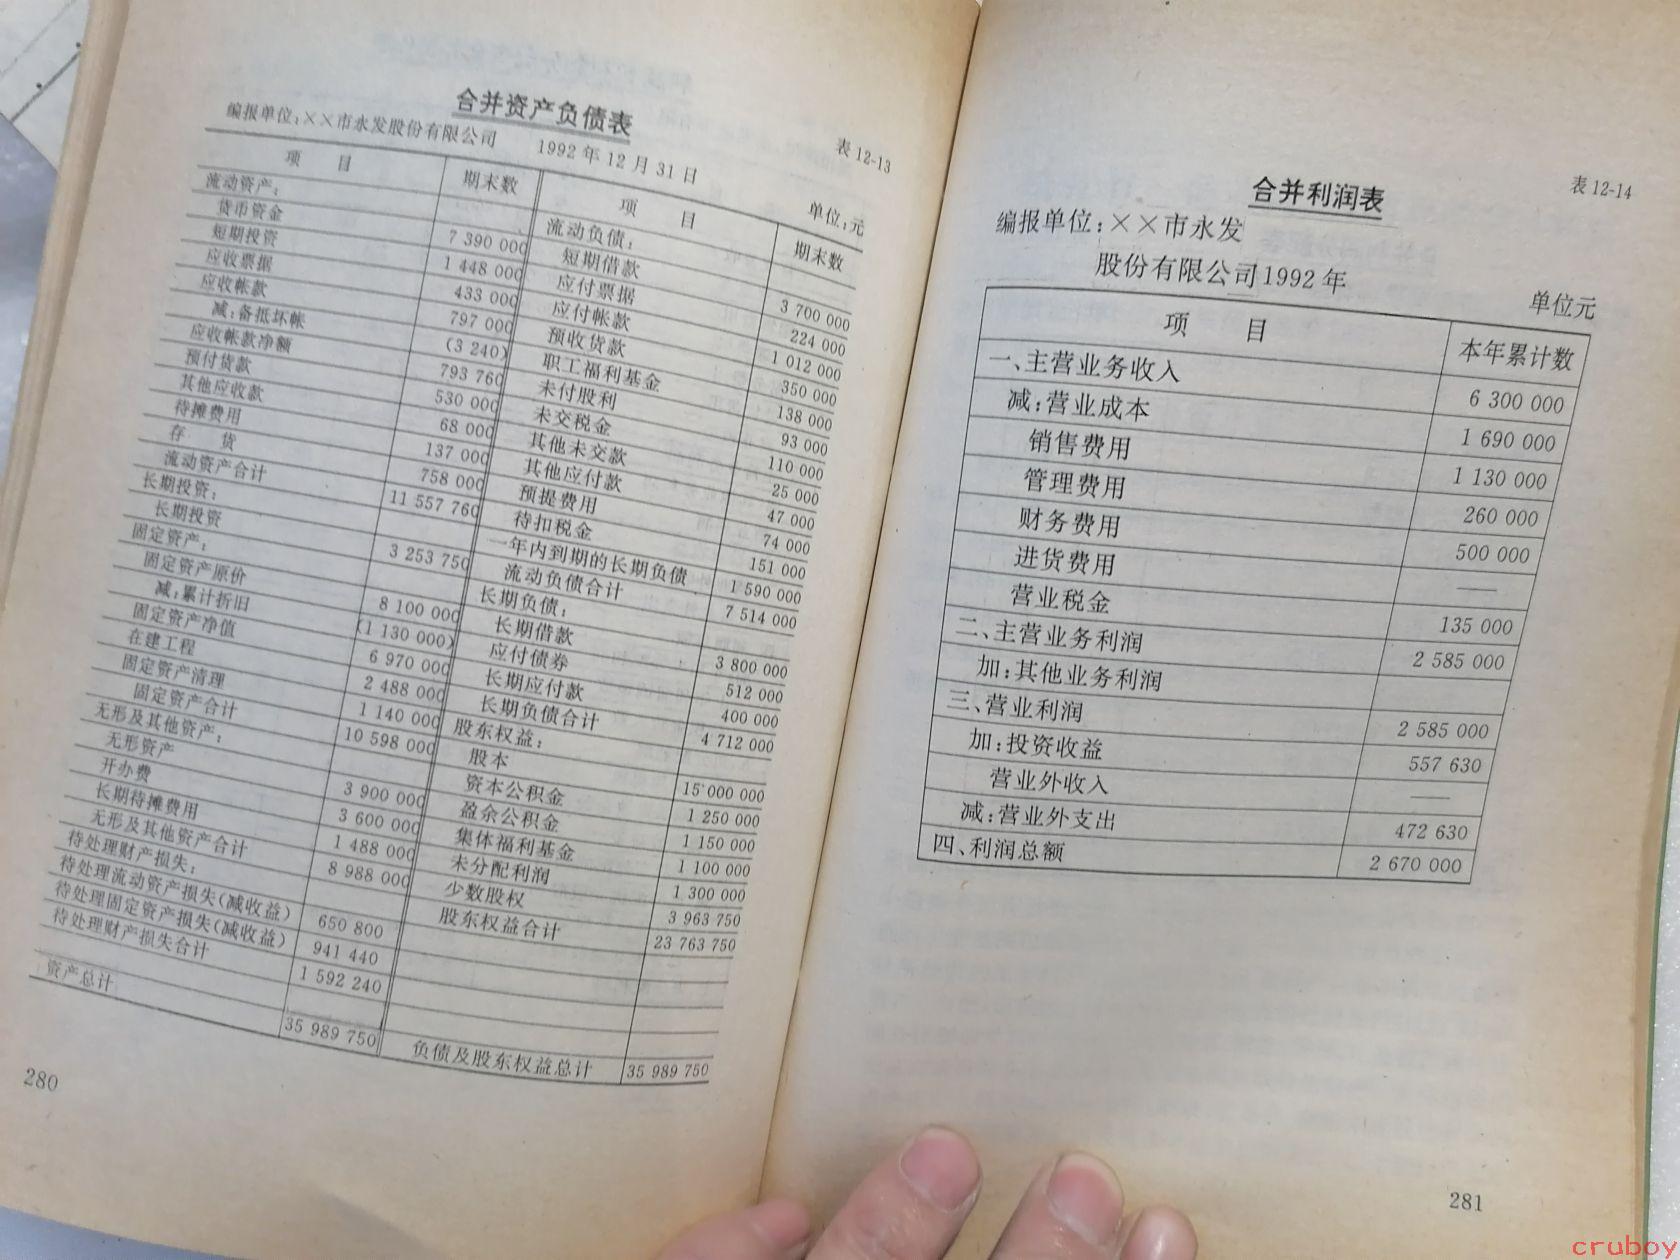 合并资产负债表
表 12-13
编报单位:××市永发股份有限公司 1992 年 12 月 31 日 单位:元
项 目 期末数
流动资产:
货币资金 7 390 000
短期投资 1 448 000
应收票据 433 000
应收帐款 797 000
减:备抵坏帐 (3 240)
应收帐款净额 793 760
预付货款 530 000
其他应收款 68 000
待摊费用 137 000
存 货 758 000
流动资产合计 11 557 760
长期投资:
长期投资 3 253 750
固定资产:
固定资产原价 8 100 000
减:累计折旧 (1 130 000)
固定资产净值 6 970 000
在建工程 2 488 000
固定资产清理 1 140 000
固定资产合计 10 598 000
无形及其他资产:
无形资产 3 900 000
开办费 3 600 000
长期待摊费用 1 488 000
无形及其他资产合计 8 988 000
待处理财产损失:
待处理流动资产损失(减收益) 650 800
待处理固定资产损失(减收益) 941 440
待处理财产损失合计 1 592 240
资产总计 35 989 750
项 目 期末数
流动负债:
短期借款 3 700 000
应付票据 224 000
应付帐款 1 012 000
预收货款 350 000
职工福利基金 138 000
未付股利 93 000
未交税金 110 000
其他未交款 25 000
其他应付款 47 000
预提费用 74 000
待扣税金 151 000
一年内到期的长期负债 1 590 000
流动负债合计 7 514 000
长期负债:
长期借款 3 800 000
应付债券 512 000
长期应付款 400 000
长期负债合计 4 712 000
股东权益:
股本 15 000 000
资本公积金 1 250 000
盈余公积金 1 150 000
集体福利基金 1 100 000
未分配利润 1 300 000
少数股权 3 963 750
股东权益合计 23 763 750
负债及股东权益总计 35 989 750
280
表 12-14
合并利润表
编报单位:××市永发
股份有限公司1992 年 单位元
项 目 本年累计数
一、主营业务收入 6 300 000
减:营业成本 1 690 000
销售费用 1 130 000
管理费用 260 000
财务费用 500 000
进货费用 ——
营业税金 135 000
二、主营业务利润 2 585 000
加:其他业务利润
三、营业利润 2 585 000
加:投资收益 557 630
营业外收入 ——
减:营业外支出 472 630
四、利润总额 2 670 000
281
cruboy